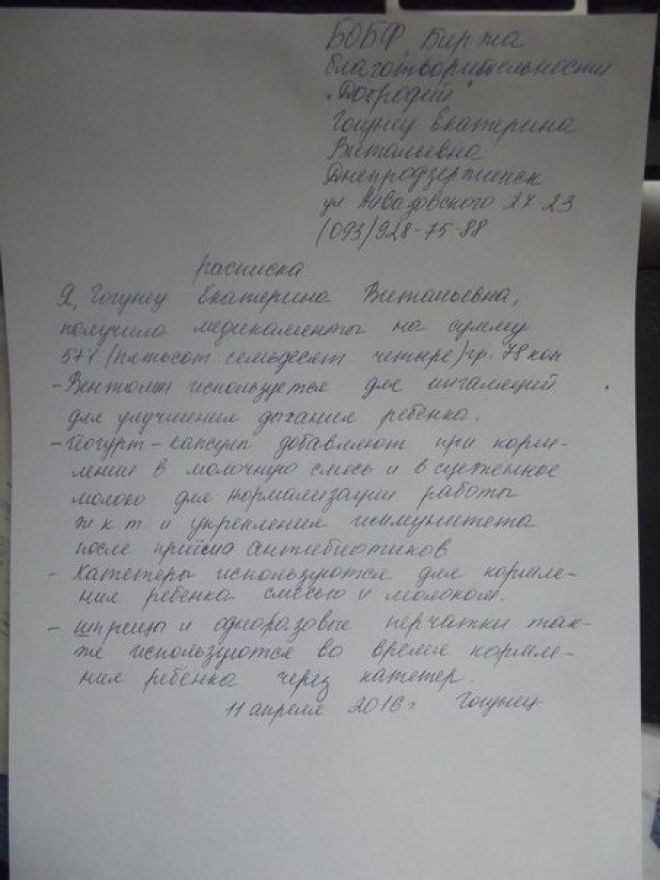 БОБФ, Биржа
благотворительности
"Добродий"
Гогунец Екатерина
Витальевна
Днепродзержинск
ул Айвазовского 23
(093)928-75-88
расписка.
Я, Гогунец Екатерина Витальевна,
получила медикаменты на сумму
574 (пятьсот семьдесят четыре) гр. 78 коп
- Вентолин используется для ингаляций
для улучшения дыхания ребенка.
- Йогурт - капсулы добавляют при корм-
лении в молочную смесь и в сцеженное
молоко для нормализации работы
ж к т и укрепления иммунитета
после приёма антибиотиков
- Катетеры используются для кормле-
ния ребенка смесью и молоком.
- шприцы и одноразовые перчатки так-
же используются во время кормле-
ния ребенка через катетер.
11 апреля 2016 г Гогунец